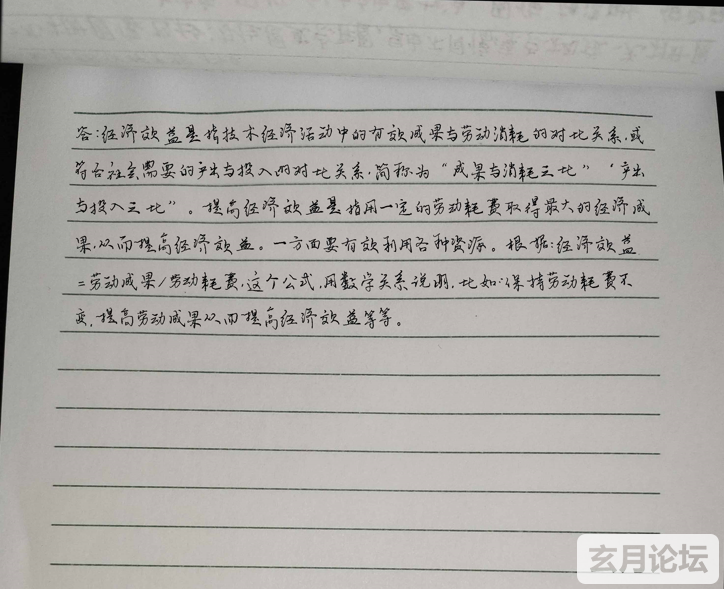 答:经济效益是指技术经济活动中的有效成果与劳动消耗的对比关系,或
符合社会需要的产出与投入的对比关系,简称为“成果与消耗三比”‘产出
与投入三比”。提高经济效益是指用一定的劳动耗费取得最大的经济成
果,从而提高经济效益。一方面要有效利用各种资源。根据:经济效益
=劳动成果/劳动耗费,这个公式,用数学关系说明,比如:保持劳动耗费不
变,提高劳动成果从而提高经济效益等等。
玄月论坛